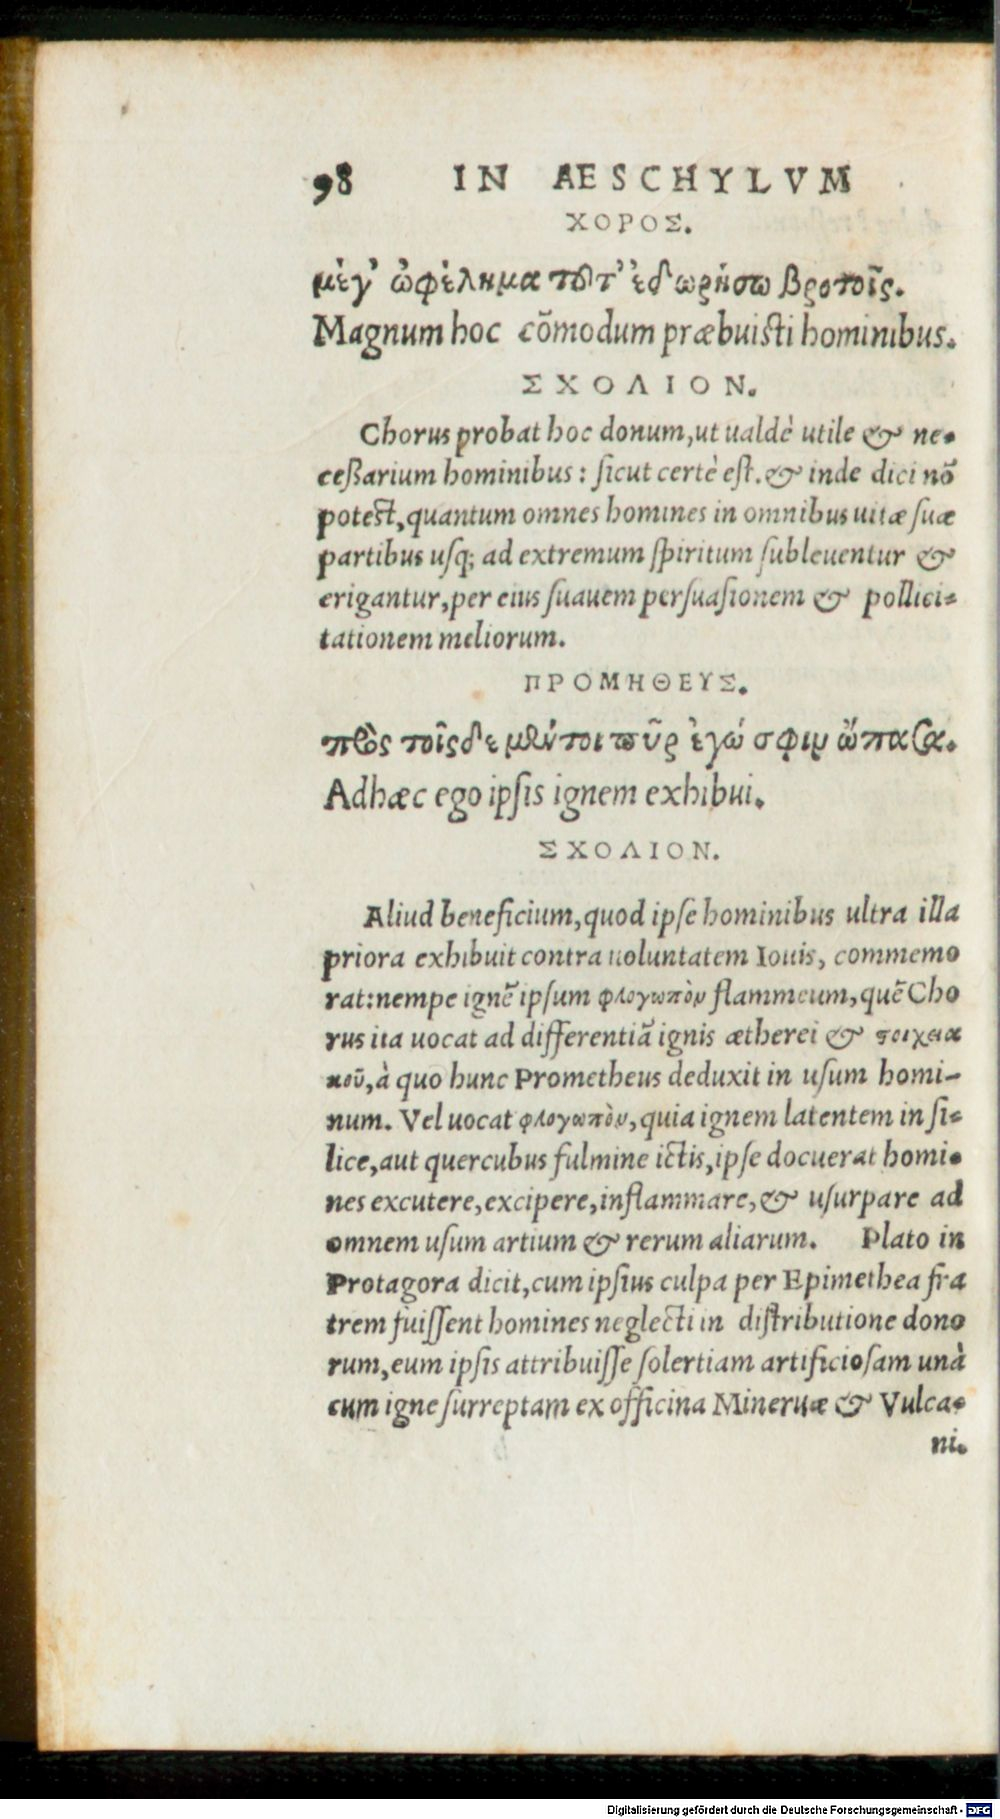 98 IN AESCHYLVM
ΧΟΡΟΣ.
μέγ' ὠφέλημα τοῦτ' ἐδωρήσω βροτοῖς.
Magnum hoc cõmodum præbuisti hominibus.
ΣΧΟΛΙΟΝ.
Chorus probat hoc donum, ut ualdè utile & ne-
ceßarium hominibus: sicut certè est. & inde dici nõ
potest, quantum omnes homines in omnibus uitæ suæ
partibus usq; ad extremum spiritum subleuentur &
erigantur, per eius suauem persuasionem & pollici-
tationem meliorum.
ΠΡΟΜΗΘΕΥΣ.
πρὸς τοῖςδε μέντοι πῦρ ἐγώ σφιν ὤπασα.
Ad hæc ego ipsis ignem exhibui.
ΣΧΟΛΙΟΝ.
Aliud beneficium, quod ipse hominibus ultra illa
priora exhibuit contra uoluntatem Iouis, commemo
rat: nempe ignẽ ipsum φλογωπὸν flammeum, quẽ Cho
rus ita uocat ad differentiã ignis ætherei & στοιχεια
κοῦ, à quo hunc Prometheus deduxit in usum homi-
num. Vel uocat φλογωπὸν, quia ignem latentem in si-
lice, aut quercubus fulmine ictis, ipse docuerat homi-
nes excutere, excipere, inflammare, & usurpare ad
omnem usum artium & rerum aliarum. Plato in
Protagora dicit, cum ipsius culpa per Epimethea fra
trem fuissent homines neglecti in distributione dono
rum, eum ipsis attribuisse solertiam artificiosam unà
cum igne surreptam ex officina Mineruæ & Vulca-
ni.
Digitalisierung gefördert durch die Deutsche Forschungsgemeinschaft - DFG